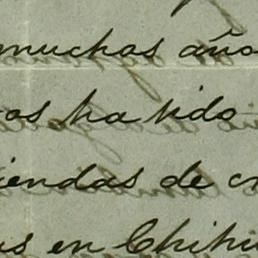 muchos año
os ha sido
iendas de c
us en Chihu